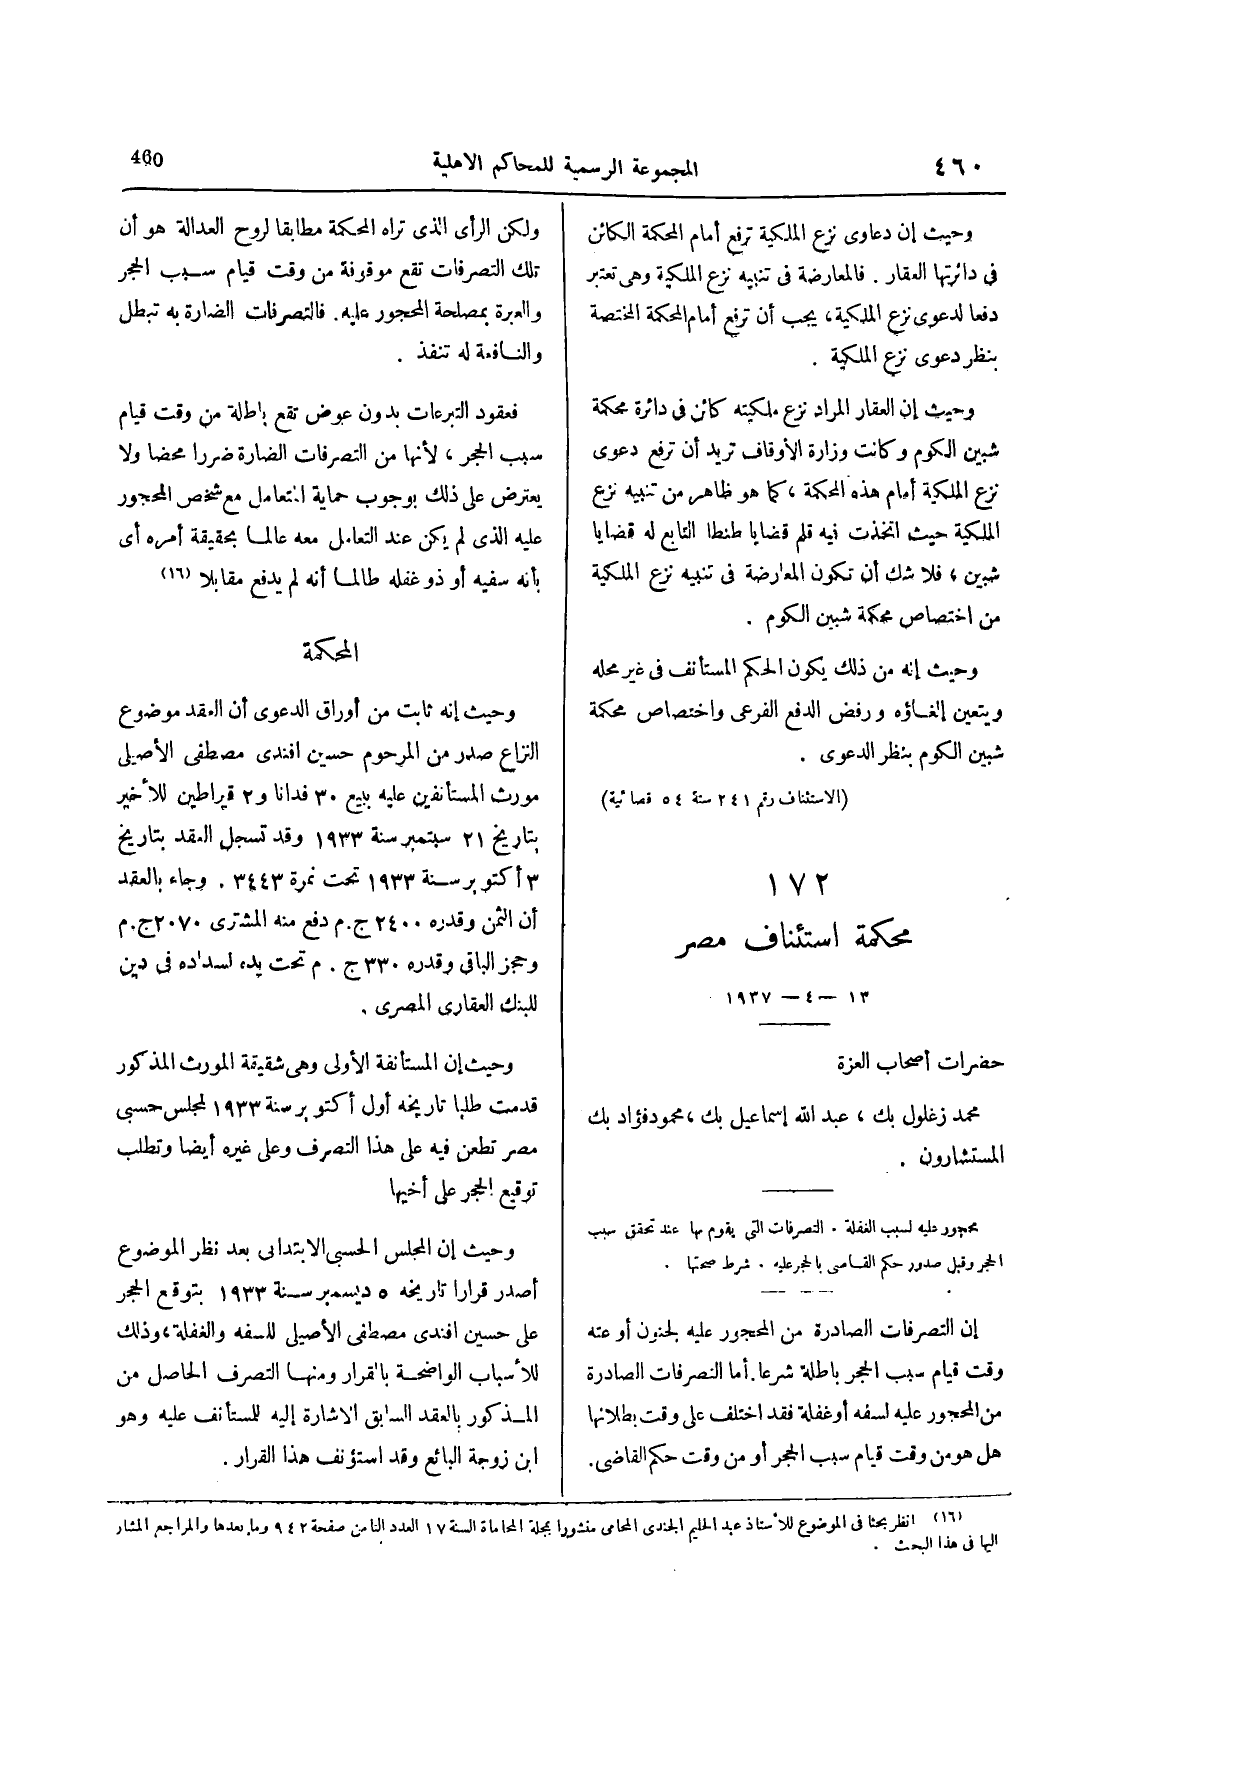 ٤٦٠
المجموعة الرسمية للمحاكم الاهلية
460
وحيث إن دعاوى نزع الملكية ترفع أمام المحكمة الكائن
فى دائرتها العقار . فالمعارضة فى تنبيه نزع الملكية وهى تعتبر
دفعا لدعوى نزع الملكية، يجب أن ترفع أمام المحكمة المختصة
بنظر دعوى نزع الملكية .
وحيث إن العقار المراد نزع ملكيته كائن فى دائرة محكمة
شبين الكوم وكانت وزارة الأوقاف تريد أن ترفع دعوى
نزع الملكية أمام هذه المحكمة ، كما هو ظاهر من تنبيه نزع
الملكية حيث اتخذت فيه قلم قضايا طنطا التابع له قضايا
شبين ، فلا شك أن تكون المعارضة فى تنبيه نزع الملكية
من اختصاص محكمة شبين الكوم .
وحيث إنه من ذلك يكون الحكم المستأنف فى غير محله
ويتعين إلغاؤه ورفض الدفع الفرعى واختصاص محكمة
شبين الكوم بنظر الدعوى .
(الاستئناف رقم ٢٤١ سنة ٥٤ قضائية)
١٧٢
محكمة استئناف مصر
١٣ — ٤ — ١٩٣٧
حضرات أصحاب العزة
محمد زغلول بك ، عبد الله إسماعيل بك ، محمود فؤاد بك
المستشارون .
محجور عليه لسبب الغفلة . التصرفات التى يقوم بها عند تحقق سبب
الحجر وقبل صدور حكم القاضى بالحجر عليه . شرط صحتها .
إن التصرفات الصادرة من المحجور عليه لجنون أو عته
وقت قيام سبب الحجر باطلة شرعا. أما التصرفات الصادرة
من المحجور عليه لسفه أو غفلة فقد اختلف على وقت بطلانها
هل هو من وقت قيام سبب الحجر أو من وقت حكم القاضى.
ولكن الرأى الذى تراه المحكمة مطابقا لروح العدالة هو أن
تلك التصرفات تقع موقوفة من وقت قيام سبب الحجر
والعبرة بمصلحة المحجور عليه. فالتصرفات الضارة به تبطل
والنافعة له تنفذ .
فعقود التبرعات بدون عوض تقع باطلة من وقت قيام
سبب الحجر ، لأنها من التصرفات الضارة ضررا محضا ولا
يعترض على ذلك بوجوب حماية المتعامل مع شخص المحجور
عليه الذى لم يكن عند التعامل معه عالما بحقيقة أمره أى
بأنه سفيه أو ذو غفله طالما أنه لم يدفع مقابلا (١٦)
المحكمة
وحيث إنه ثابت من أوراق الدعوى أن العقد موضوع
النزاع صدر من المرحوم حسين افندى مصطفى الأصيلى
مورث المستأنفين عليه ببيع ٣٠ فدانا و٢ قيراطين للأخير
بتاريخ ٢١ سبتمبر سنة ١٩٣٣ وقد تسجل العقد بتاريخ
٣ أكتوبر سنة ١٩٣٣ تحت نمرة ٣٤٤٣ . وجاء بالعقد
أن الثمن وقدره ٢٤٠٠ ج.م دفع منه المشترى ٢٠٧٠ج.م
وحجز الباقى وقدره ٣٣٠ ج . م تحت يده لسداده فى دين
للبنك العقارى المصرى .
وحيث إن المستأنفة الأولى وهى شقيقة المورث المذكور
قدمت طلبا تاريخه أول أكتوبر سنة ١٩٣٣ لمجلس حسبى
مصر تطعن فيه على هذا التصرف وعلى غيره أيضا وتطلب
توقيع الحجر على أخيها
وحيث إن المجلس الحسبى الابتدائى بعد نظر الموضوع
أصدر قرارا تاريخه ٥ ديسمبر سنة ١٩٣٣ بتوقع الحجر
على حسين افندى مصطفى الأصيلى للسفه والغفلة، وذلك
للأسباب الواضحة بالقرار ومنها التصرف الحاصل من
المذكور بالعقد السابق الاشارة إليه للمستأنف عليه وهو
ابن زوجة البائع وقد استؤنف هذا القرار .
(١٦) انظر بحثا فى الموضوع للأستاذ عبد الحليم الجندى المحامى منشورا بمجلة المحاماة السنة ١٧ العدد الثامن صفحة ٩٤٢ وما بعدها والمراجع المشار
اليها فى هذا البحث .